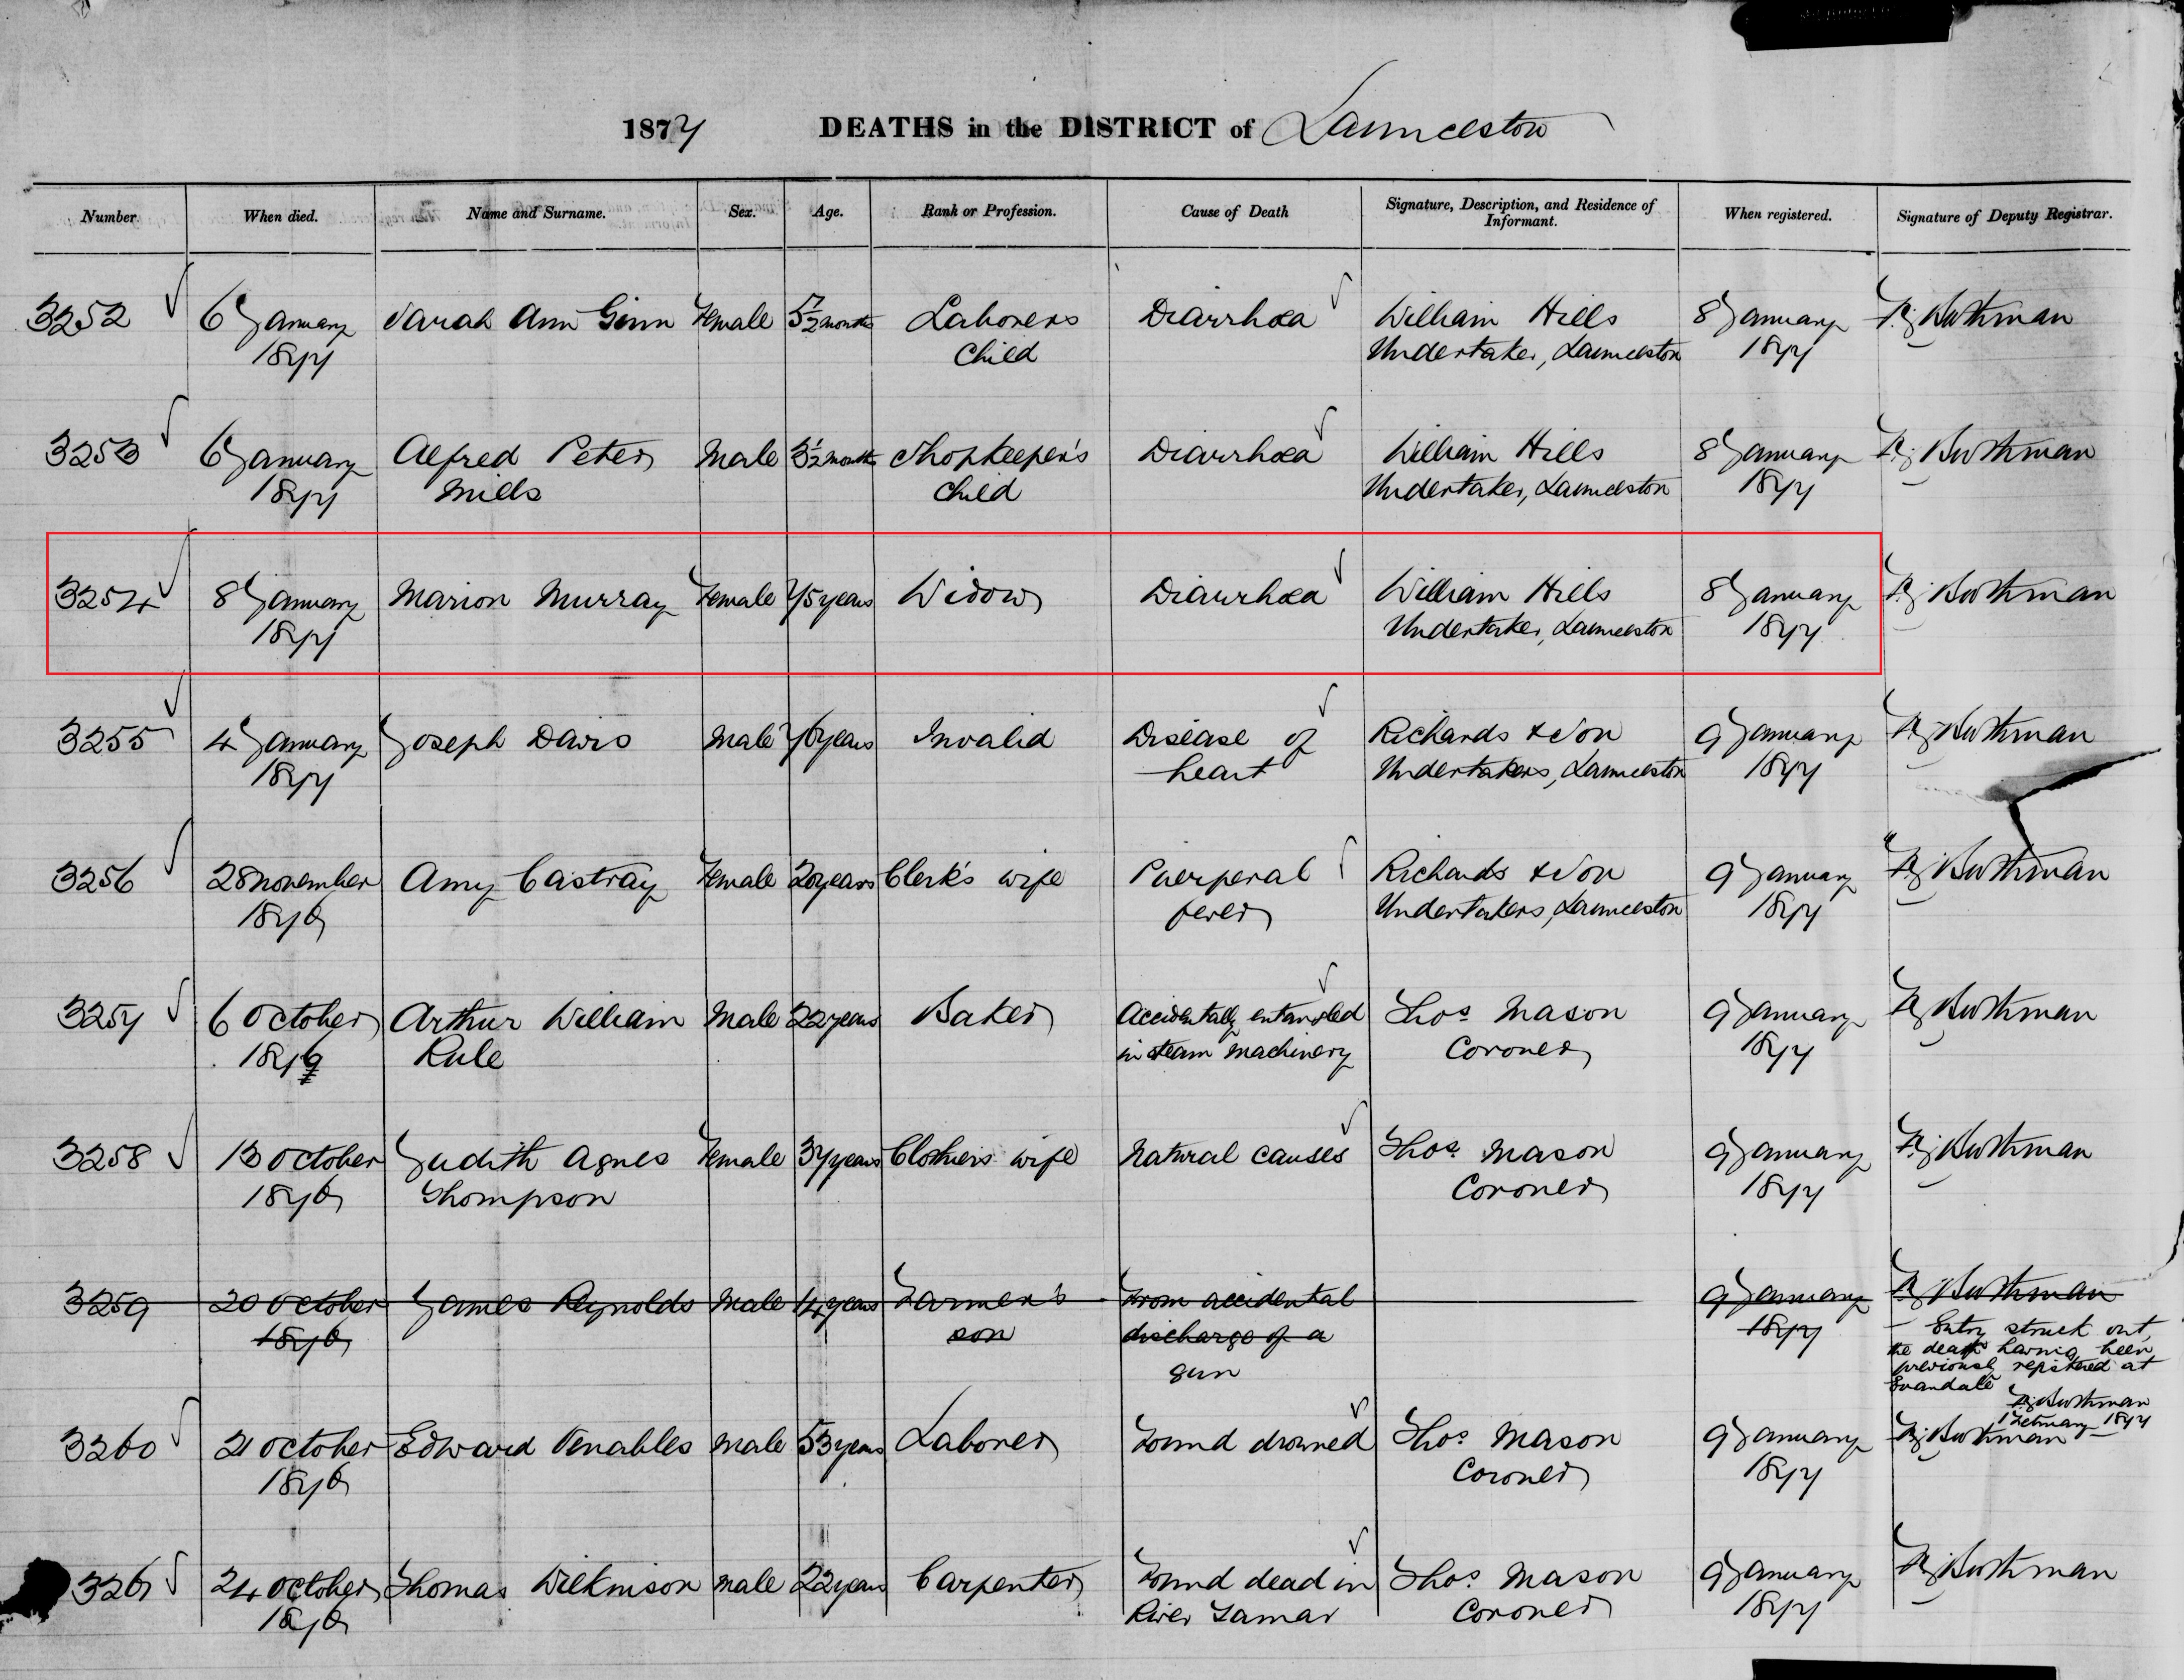 1877 DEATHS in the DISTRICT of Launceston
Number When died. Name and Surname. Sex. Age. Rank or Profession. Cause of Death Signature, Description, and Residence of Informant. When registered. Signature of Deputy Registrar.
3252 6 January Sarah Ann Ginn Female months Laborers Diarrhœa William Hills 8 January Boothman
1877 Child Undertaker, Launceston 1877
3253 6 January Alfred Peter Male 3½ months Shopkeeper's Diarrhœa William Hills 8 January Boothman
1877 Mills Child Undertaker, Launceston 1877
3254 8 January Marion Murray Female 75 years Widow Diarrhœa William Hills 8 January Boothman
1877 Undertaker, Launceston 1877
3255 4 January Joseph Davis Male 76 years Invalid Disease of Richards & Son 9 January Boothman
1877 heart Undertakers, Launceston 1877
3256 28 November Amy Castray Female 20 years Clerk's wife Puerperal Richards & Son 9 January Boothman
1876 fever Undertakers, Launceston 1877
3257 6 October Arthur William Male 22 years Baker Accidentally entangled Thos. Mason 9 January Boothman
1876 Rule in steam machinery Coroner 1877
3258 13 October Judith Agnes Female 37 years Clothiers wife Natural causes Thos. Mason 9 January Boothman
1876 Thompson Coroner 1877
3259 20 October James Reynolds Male 14 years Farmer's From accidental 9 January Boothman
1876 son discharge of a 1877 Entry struck out,
gun the death having been
previously registered at
Evandale
Boothman
1 February 1877
3260 21 October Edward Venables Male 53 years Laborer Found drowned Thos. Mason 9 January Boothman
1876 Coroner 1877
3261 24 October Thomas Wilkinson Male 22 years Carpenter Found dead in Thos. Mason 9 January Boothman
1876 River Tamar Coroner 1877